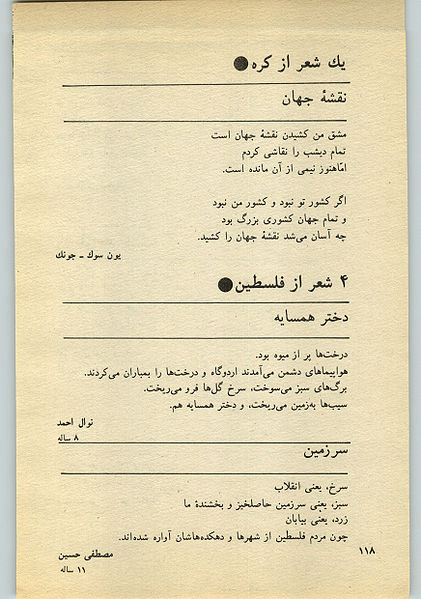 یك شعر از کره●
نقشهٔ جهان
مشق من کشیدن نقشهٔ جهان است
تمام دیشب را نقاشی کردم
امّاهنوز نیمی از آن مانده است.
اگر کشور تو نبود و کشور من نبود
و تمام جهان کشوری بزرگ بود
چه آسان می‌شد نقشهٔ جهان را کشید.
یون سوك ـ جونك
۴ شعر از فلسطین●
دختر همسایه
درخت‌ها پر از میوه بود.
هواپیماهای دشمن می‌آمدند اردوگاه و درخت‌ها را بمباران می‌کردند.
برگ‌های سبز می‌سوخت، سرخ گل‌ها فرو می‌ریخت.
سیب‌ها به‌زمین می‌ریخت، و دختر همسایه هم.
نوال احمد
۸ ساله
سرزمین
سرخ، یعنی انقلاب
سبز، یعنی سرزمین حاصلخیز و بخشندهٔ ما
زرد، یعنی بیابان
چون مردم فلسطین از شهرها و دهکده‌هاشان آواره شده‌اند.
مصطفی حسین
۱۱ ساله
۱۱۸